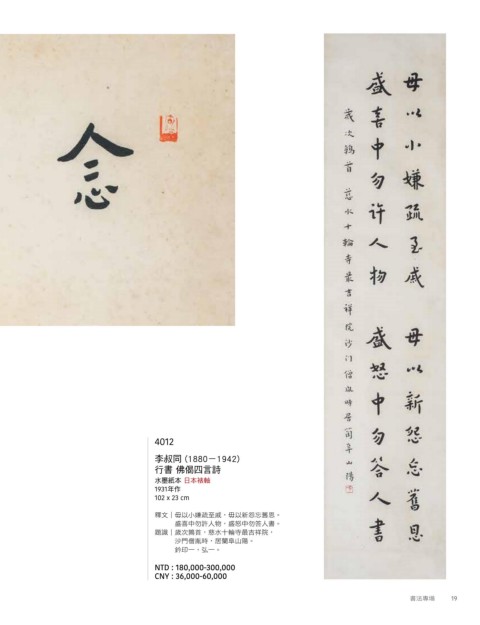 念
毋以小嫌疏至戚 毋以新怨忘舊恩
盛喜中勿许人物 盛怒中勿答人書
歲次鶉首 慈水十輪寺最吉祥院沙门僧胤時居蘭阜山陽
4012
李叔同 (1880－1942)
行書 佛偈四言詩
水墨紙本 日本裱軸
1931年作
102 x 23 cm
釋文｜毋以小嫌疏至戚，毋以新怨忘舊恩。
盛喜中勿許人物，盛怒中勿答人書。
題識｜歲次鶉首，慈水十輪寺最吉祥院，
沙門僧胤時，居蘭阜山陽。
鈐印一，弘一。
NTD : 180,000-300,000
CNY : 36,000-60,000
書法專場 19